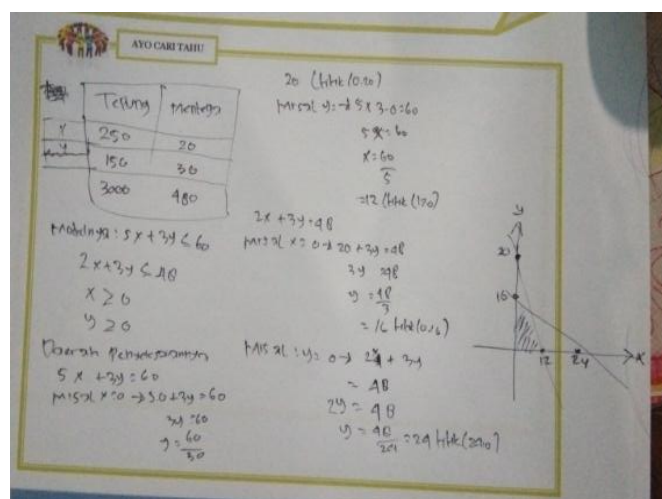 AYO CARI TAHU
Terung Mentega
X 250 20
Y 150 30
3000 480
Modelnya : 5x + 3y ≤ 60
2x + 3y ≤ 48
x ≥ 0
y ≥ 0
Daerah Penyelesaiannya
5x + 3y = 60
misal x = 0 → 5.0 + 3y = 60
3y = 60
y = 60
30
20 (titik (0.20)
misal y = → 5x 3.0 = 60
5x = 60
x = 60
5
= 12 (titik (12,0)
2x + 3y = 48
misal x = 0 → 20 + 3y = 48
3y = 48
y = 48
3
= 16 titik (0,16)
Misal : y = 0 → + 3y
= 48
2y = 48
y = 48
= 24 titik (24,0)
y
20
16
12 24 x